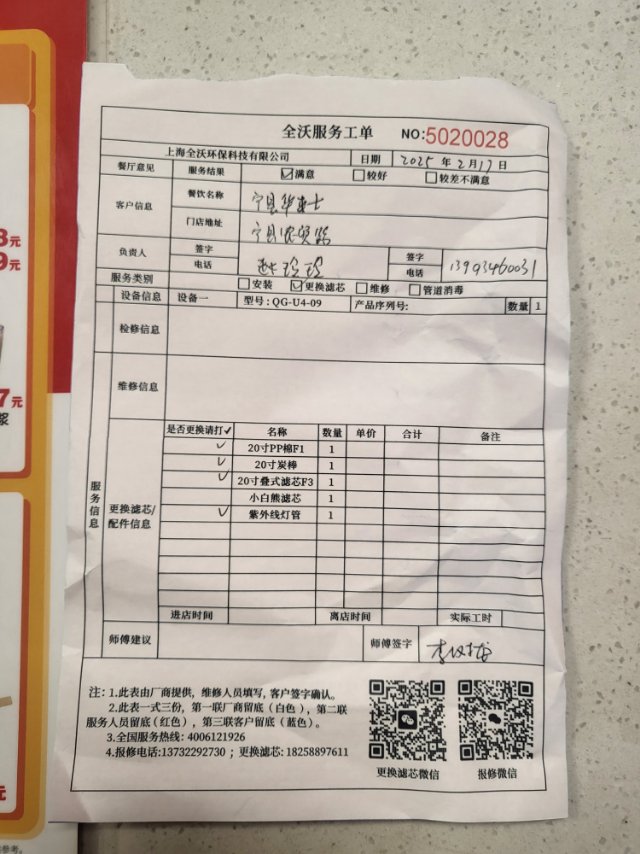 全沃服务工单 NO:5020028
上海全沃环保科技有限公司 日期 2025 年 2 月 17 日
餐厅意见 服务结果 ☑满意 ☐较好 ☐较差不满意
客户信息 餐饮名称 宁县华莱士
门店地址 宁县
负责人 签字 签字
电话 玲玲 电话 13993460031
服务类别 ☐安装 ☑更换滤芯 ☐维修 ☐管道消毒
设备信息 设备一 型号: QG-U4-09 产品序列号: 数量 1
检修信息
维修信息
服务信息
更换滤芯/配件信息
是否更换请打✓ 名称 数量 单价 合计 备注
✓ 20寸PP棉F1 1
✓ 20寸炭棒 1
✓ 20寸叠式滤芯F3 1
小白熊滤芯 1
✓ 紫外线灯管 1
进店时间 离店时间 实际工时
师傅建议 师傅签字 李
注: 1.此表由厂商提供, 维修人员填写, 客户签字确认。
2.此表一式三份, 第一联厂商留底(白色), 第二联
服务人员留底(红色), 第三联客户留底(蓝色)。
3.全国服务热线: 4006121926
4.报修电话:13732292730 ; 更换滤芯: 18258897611
更换滤芯微信 报修微信
3元
9元
7元
浆
元
参考。